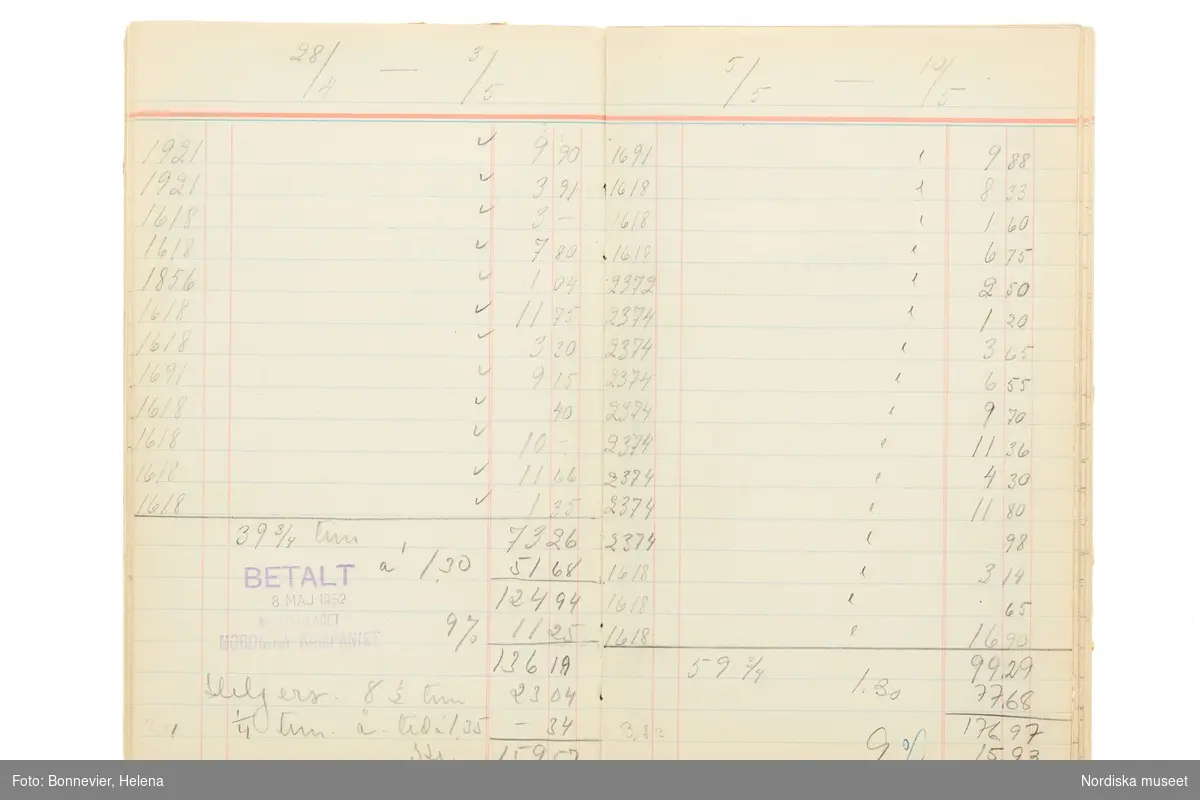 28/4 — 3/5
1921 ✓ 9 90
1921 ✓ 3 91
1618 ✓ 3 –
1618 ✓ 7 80
1856 ✓ 1 04
1618 ✓ 11 75
1618 ✓ 3 30
1691 ✓ 9 15
1618 ✓ 40
1618 ✓ 10 –
1618 ✓ 11 66
1618 ✓ 1 35
39 3/4 tim 73 26
à 1.30 51 68
BETALT
8 MAJ 1952
124 94
NORDISKA KOMPANIET
9% 11 25
136 19
Helgers. 8 1/2 tim 23 04
1/4 tim. à 1.35 – 34
Kr. 159 57
5/5 — 10/5
1691 9 88
1618 8 33
1618 1 60
1618 6 75
2372 2 50
2374 1 20
2374 3 65
2374 6 55
2374 9 70
2374 11 36
2374 4 30
2374 11 80
2374 98
1618 3 14
1618 65
1618 16 90
59 3/4 99.29
1.30 77.68
176.97
9% 15.93
Foto: Bonnevier, Helena
Nordiska museet